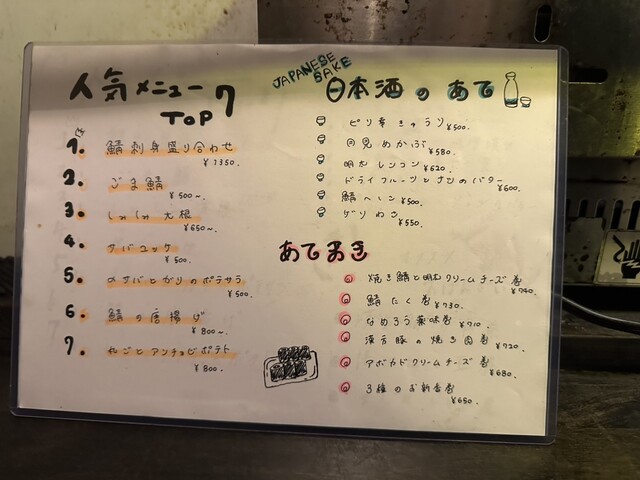 人気メニュー
TOP 7
1. 鯖刺身盛り合わせ
¥1350.
2. ごま鯖
¥500〜.
3. しみしみ大根
¥650〜.
4. サバユッケ
¥500.
5. 〆サバとガリのポテサラ
¥500.
6. 鯖の唐揚げ
¥800〜.
7. 丸ごとアンチョビポテト
¥800.
JAPANESE SAKE
日本酒のあて
ピリ辛きゅうり ¥500.
月見めかぶ ¥580.
明太レンコン ¥620.
ドライフルーツと のバター ¥600.
鯖へしこ ¥500.
¥550.
あてまき
焼き鯖と明太クリームチーズ巻 ¥740.
鯖たく巻 ¥730.
なめろう薬味巻 ¥710.
漢方豚の焼き肉巻 ¥720.
アボカドクリームチーズ巻 ¥680.
3種のお新香巻 ¥650.